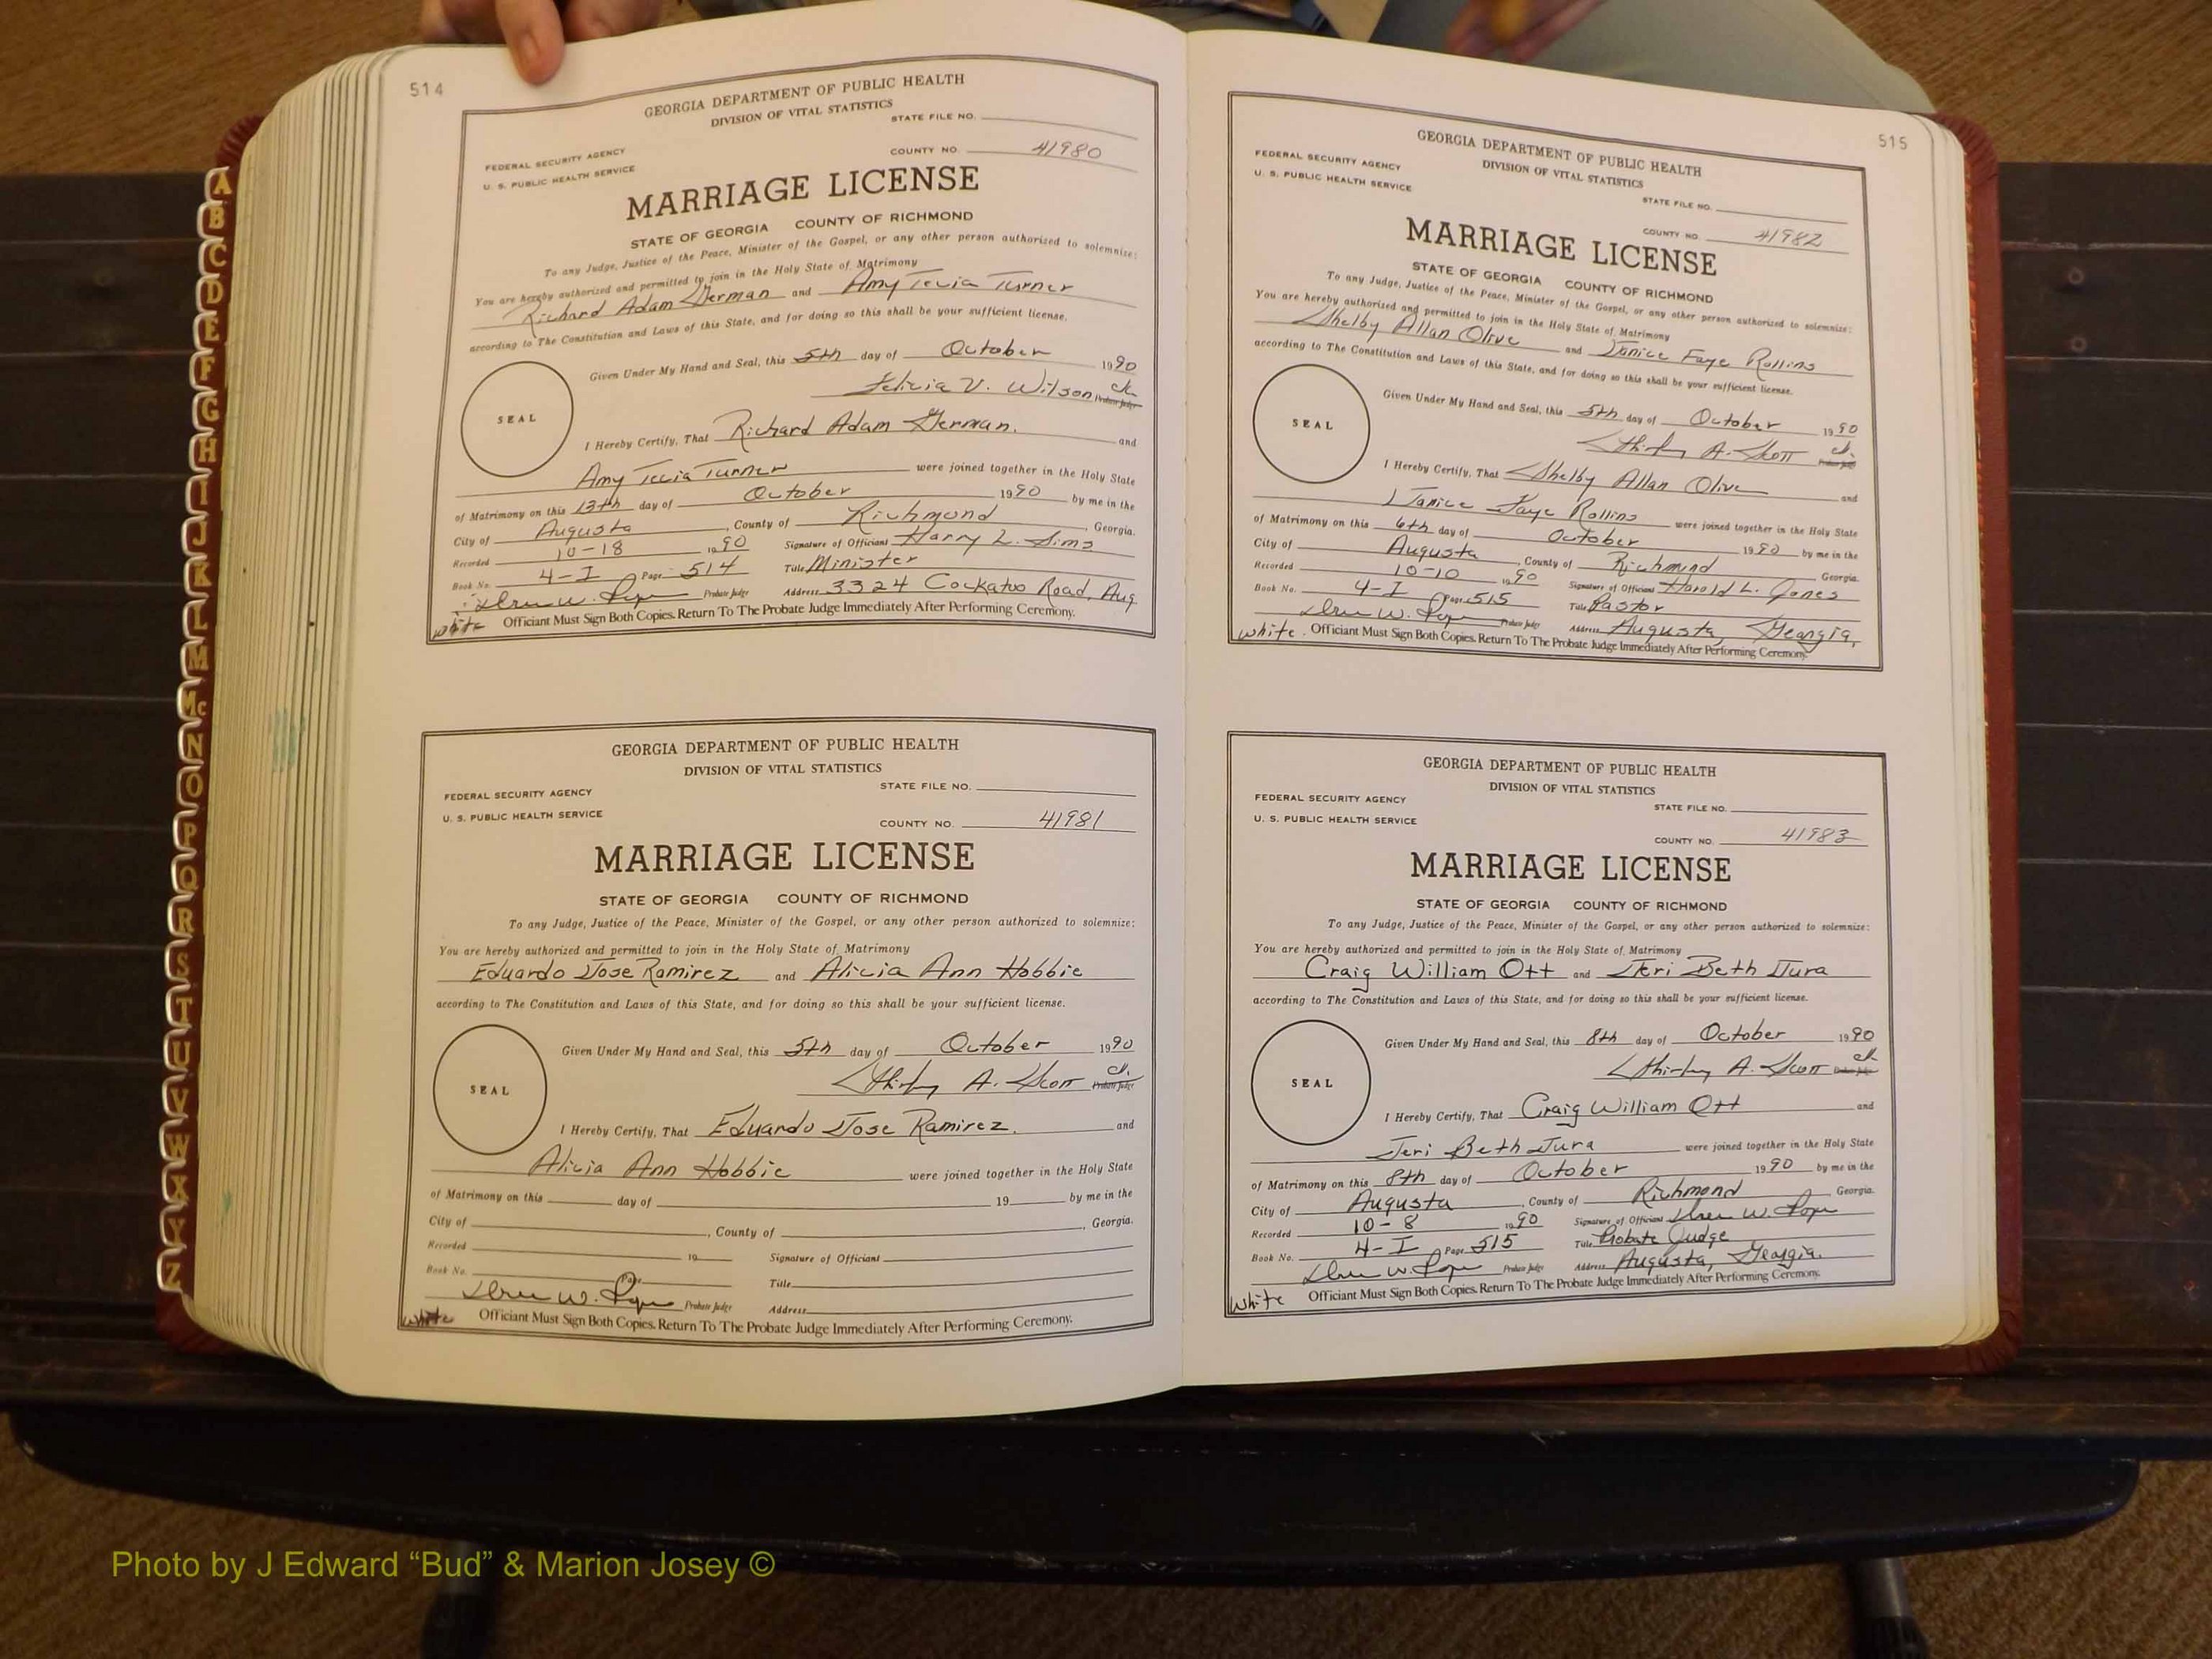 514
GEORGIA DEPARTMENT OF PUBLIC HEALTH
DIVISION OF VITAL STATISTICS
STATE FILE NO.
FEDERAL SECURITY AGENCY
COUNTY NO. 41980
U. S. PUBLIC HEALTH SERVICE
MARRIAGE LICENSE
STATE OF GEORGIA COUNTY OF RICHMOND
To any Judge, Justice of the Peace, Minister of the Gospel, or any other person authorized to solemnize:
You are hereby authorized and permitted to join in the Holy State of Matrimony
Richard Adam German and Amy Turner
according to The Constitution and Laws of this State, and for doing so this shall be your sufficient license.
Given Under My Hand and Seal, this 5th day of October 1990
Felicia V. Wilson ck Probate Judge
SEAL
I Hereby Certify, That Richard Adam German. and
Amy Turner were joined together in the Holy State
of Matrimony on this 13th day of October 1990 by me in the
City of Augusta, County of Richmond, Georgia.
Recorded 10-18 1990 Signature of Officiant Harry L. Sims
Book No. 4-I Page 514 Title Minister
Probate Judge Address 3324 Cockatoo Road, Aug.
white Officiant Must Sign Both Copies. Return To The Probate Judge Immediately After Performing Ceremony.
GEORGIA DEPARTMENT OF PUBLIC HEALTH
DIVISION OF VITAL STATISTICS
STATE FILE NO.
FEDERAL SECURITY AGENCY
U. S. PUBLIC HEALTH SERVICE
COUNTY NO. 41981
MARRIAGE LICENSE
STATE OF GEORGIA COUNTY OF RICHMOND
To any Judge, Justice of the Peace, Minister of the Gospel, or any other person authorized to solemnize:
You are hereby authorized and permitted to join in the Holy State of Matrimony
Eduardo Jose Ramirez and Alicia Ann Hobbie
according to The Constitution and Laws of this State, and for doing so this shall be your sufficient license.
Given Under My Hand and Seal, this 5th day of October 1990
Shirley A. Scott ck. Probate Judge
SEAL
I Hereby Certify, That Eduardo Jose Ramirez. and
Alicia Ann Hobbie were joined together in the Holy State
of Matrimony on this day of 19 by me in the
City of , County of , Georgia.
Recorded 19 Signature of Officiant
Book No. Page Title
Probate Judge Address
white Officiant Must Sign Both Copies. Return To The Probate Judge Immediately After Performing Ceremony.
515
GEORGIA DEPARTMENT OF PUBLIC HEALTH
DIVISION OF VITAL STATISTICS
FEDERAL SECURITY AGENCY
U. S. PUBLIC HEALTH SERVICE
STATE FILE NO.
COUNTY NO. 41982
MARRIAGE LICENSE
STATE OF GEORGIA COUNTY OF RICHMOND
To any Judge, Justice of the Peace, Minister of the Gospel, or any other person authorized to solemnize:
You are hereby authorized and permitted to join in the Holy State of Matrimony
Shelby Allan Olive and Janice Faye Rollins
according to The Constitution and Laws of this State, and for doing so this shall be your sufficient license.
Given Under My Hand and Seal, this 5th day of October 1990
Shirley A. Scott ck. Probate Judge
SEAL
I Hereby Certify, That Shelby Allan Olive and
Janice Faye Rollins were joined together in the Holy State
of Matrimony on this 6th day of October 1990 by me in the
City of Augusta, County of Richmond Georgia.
Recorded 10-10 1990 Signature of Officiant Harold L. Jones
Book No. 4-I Page 515 Title Pastor
Probate Judge Address Augusta, Georgia,
white. Officiant Must Sign Both Copies. Return To The Probate Judge Immediately After Performing Ceremony.
GEORGIA DEPARTMENT OF PUBLIC HEALTH
DIVISION OF VITAL STATISTICS
FEDERAL SECURITY AGENCY
STATE FILE NO.
U. S. PUBLIC HEALTH SERVICE
COUNTY NO. 41983
MARRIAGE LICENSE
STATE OF GEORGIA COUNTY OF RICHMOND
To any Judge, Justice of the Peace, Minister of the Gospel, or any other person authorized to solemnize:
You are hereby authorized and permitted to join in the Holy State of Matrimony
Craig William Ott and Jeri Beth Jura
according to The Constitution and Laws of this State, and for doing so this shall be your sufficient license.
Given Under My Hand and Seal, this 8th day of October 1990
Shirley A. Scott ck Probate Judge
SEAL
I Hereby Certify, That Craig William Ott and
Jeri Beth Jura were joined together in the Holy State
of Matrimony on this 8th day of October 1990 by me in the
City of Augusta, County of Richmond, Georgia.
Recorded 10-8 1990 Signature of Officiant
Book No. 4-I Page 515 Title Probate Judge
Probate Judge Address Augusta, Georgia.
White Officiant Must Sign Both Copies. Return To The Probate Judge Immediately After Performing Ceremony.
A
B
C
D
E
F
G
H
I
J
K
L
M
Mc
N
O
P
Q
R
S
T
U
V
W
X
Y
Z
Photo by J Edward “Bud” & Marion Josey ©